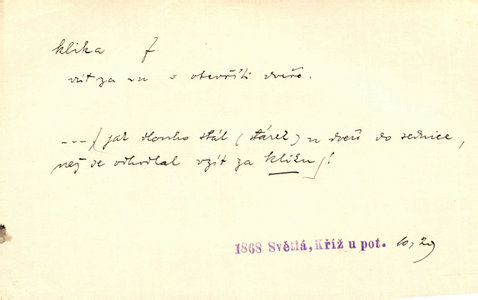 klika f
vzít za ni a otevříti dveře.
--- jak dlouho stál (stařec) u dveří do sednice,
než se odhodlal vzít za kliku!
1868 Světlá, Kříž u pot. 10, 29